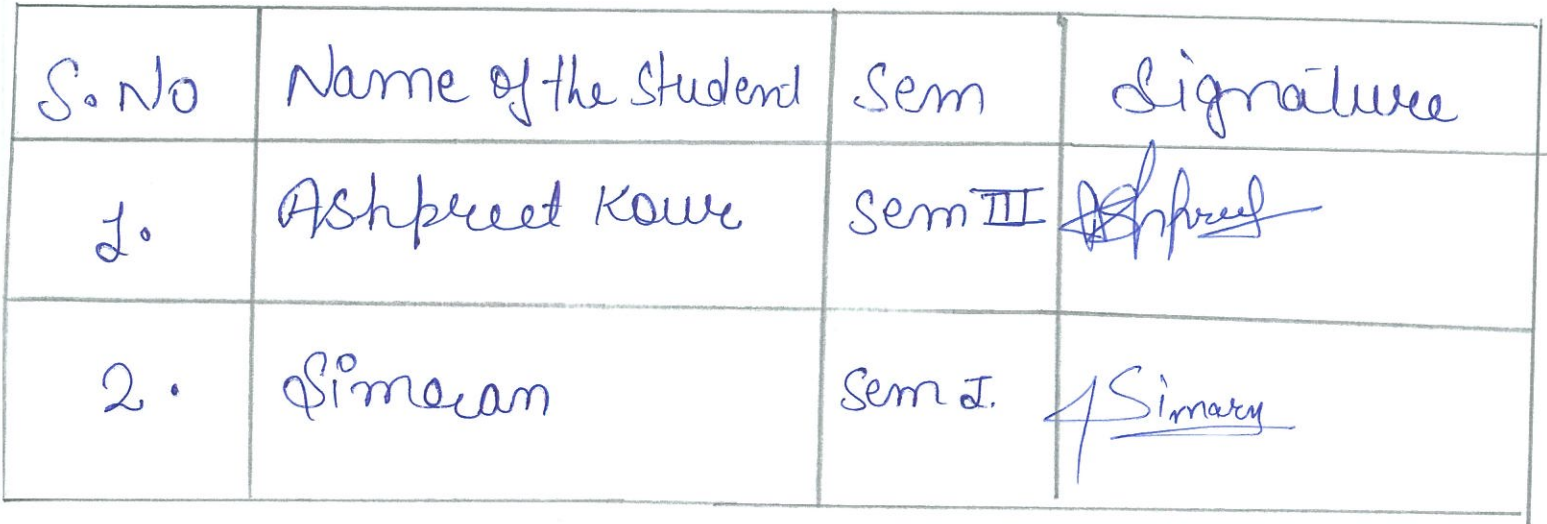 S.No Name of the Student Sem Signature
1. Ashpreet Kaur Sem III Ashpreet
2. Simran Sem I. Simran